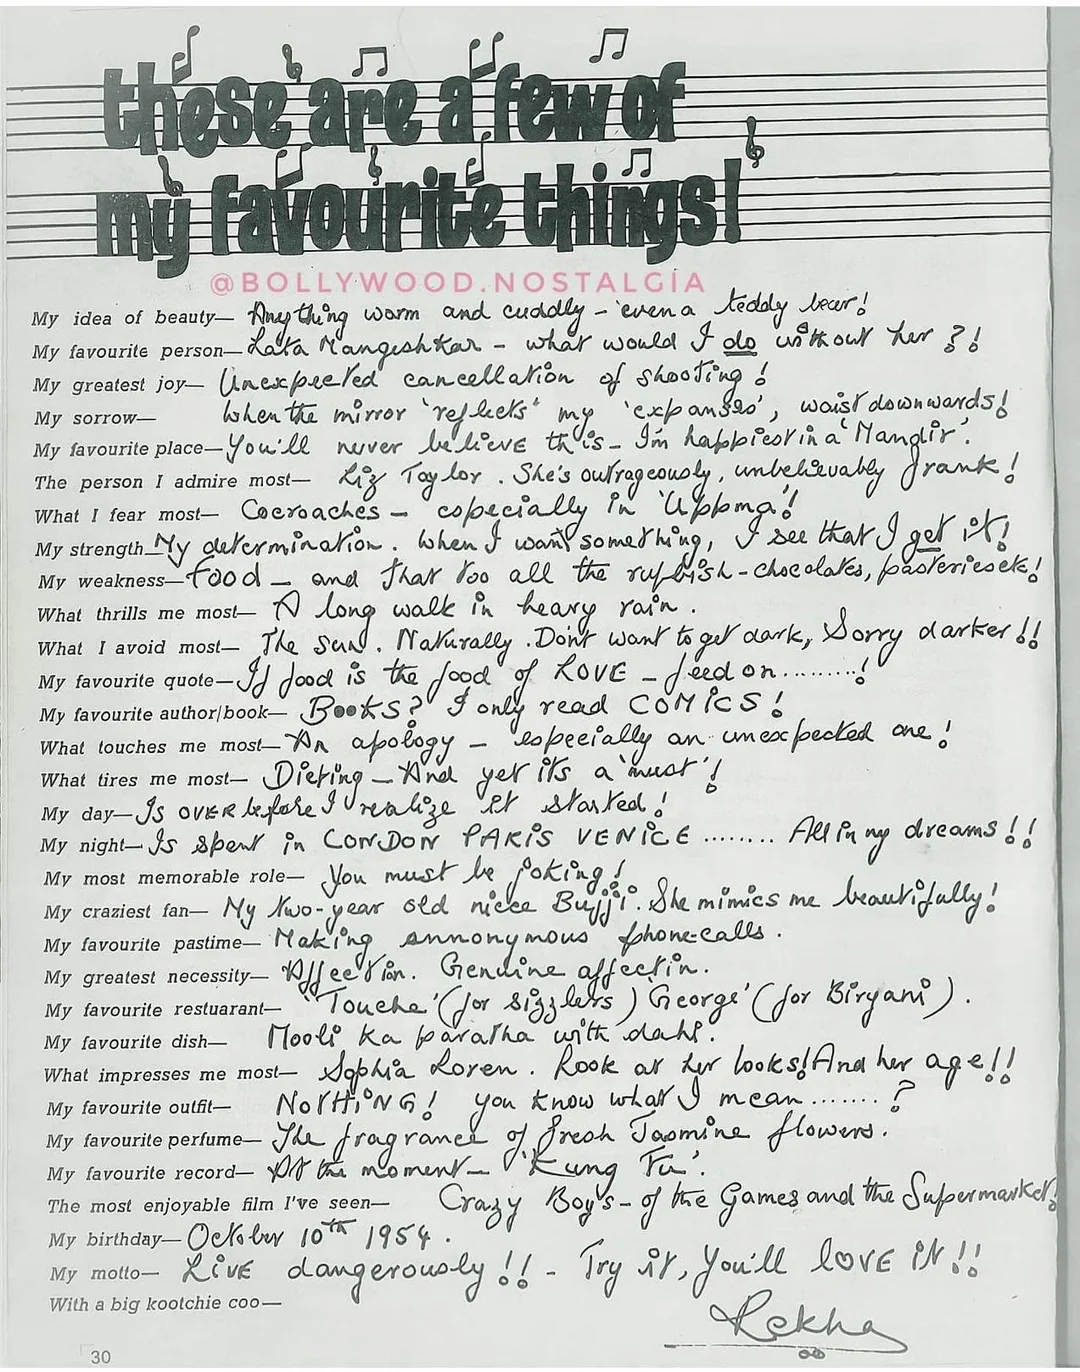 these are a few of
my favourite things!
@BOLLYWOOD.NOSTALGIA
My idea of beauty— Anything warm and cuddly - 'even a teddy bear!
My favourite person— Lata Mangeshkar - what would I do without her ?!
My greatest joy— Unexpected cancellation of shooting!
My sorrow— When the mirror 'reflects' my 'expanses', waist downwards!
My favourite place— You'll never believe this - I'm happiest in a 'Mandir'.
The person I admire most— Liz Taylor. She's outrageously, unbelievably frank!
What I fear most— Cocroaches - especially in 'Uppma'!
My strength— My determination. When I want something, I see that I get it!
My weakness— Food - and that too all the rubbish - chocolates, pasteries etc!
What thrills me most— A long walk in heavy rain.
What I avoid most— The Sun. Naturally. Don't want to get dark, Sorry darker!!
My favourite quote— If food is the food of LOVE - feed on.........!
My favourite author/book— Books? I only read COMICS!
What touches me most— An apology - especially an unexpected one!
What tires me most— Dieting - And yet its a 'must'!
My day— Is OVER before I realize it started!
My night— Is spent in LONDON PARIS VENICE ........ All in my dreams!!
My most memorable role— You must be joking!
My craziest fan— My two-year old niece Bujji. She mimics me beautifully!
My favourite pastime— Making annonymous phone-calls.
My greatest necessity— Affection. Genuine affection.
My favourite restuarant— 'Touche' (for sizzlers) 'George' (for Biryani).
My favourite dish— Mooli ka paratha with dahi.
What impresses me most— Sophia Loren. Look at her looks! And her age!!
My favourite outfit— NOTHING! You know what I mean.......?
My favourite perfume— The fragrance of fresh Jasmine flowers.
My favourite record— At the moment - 'Kung Fu'.
The most enjoyable film I've seen— Crazy Boy's - of the Games and the Supermarket!
My birthday— October 10th 1954.
My motto— LIVE dangerously!! - Try it, You'll LOVE IT!!
With a big kootchie coo—
Rekha
30